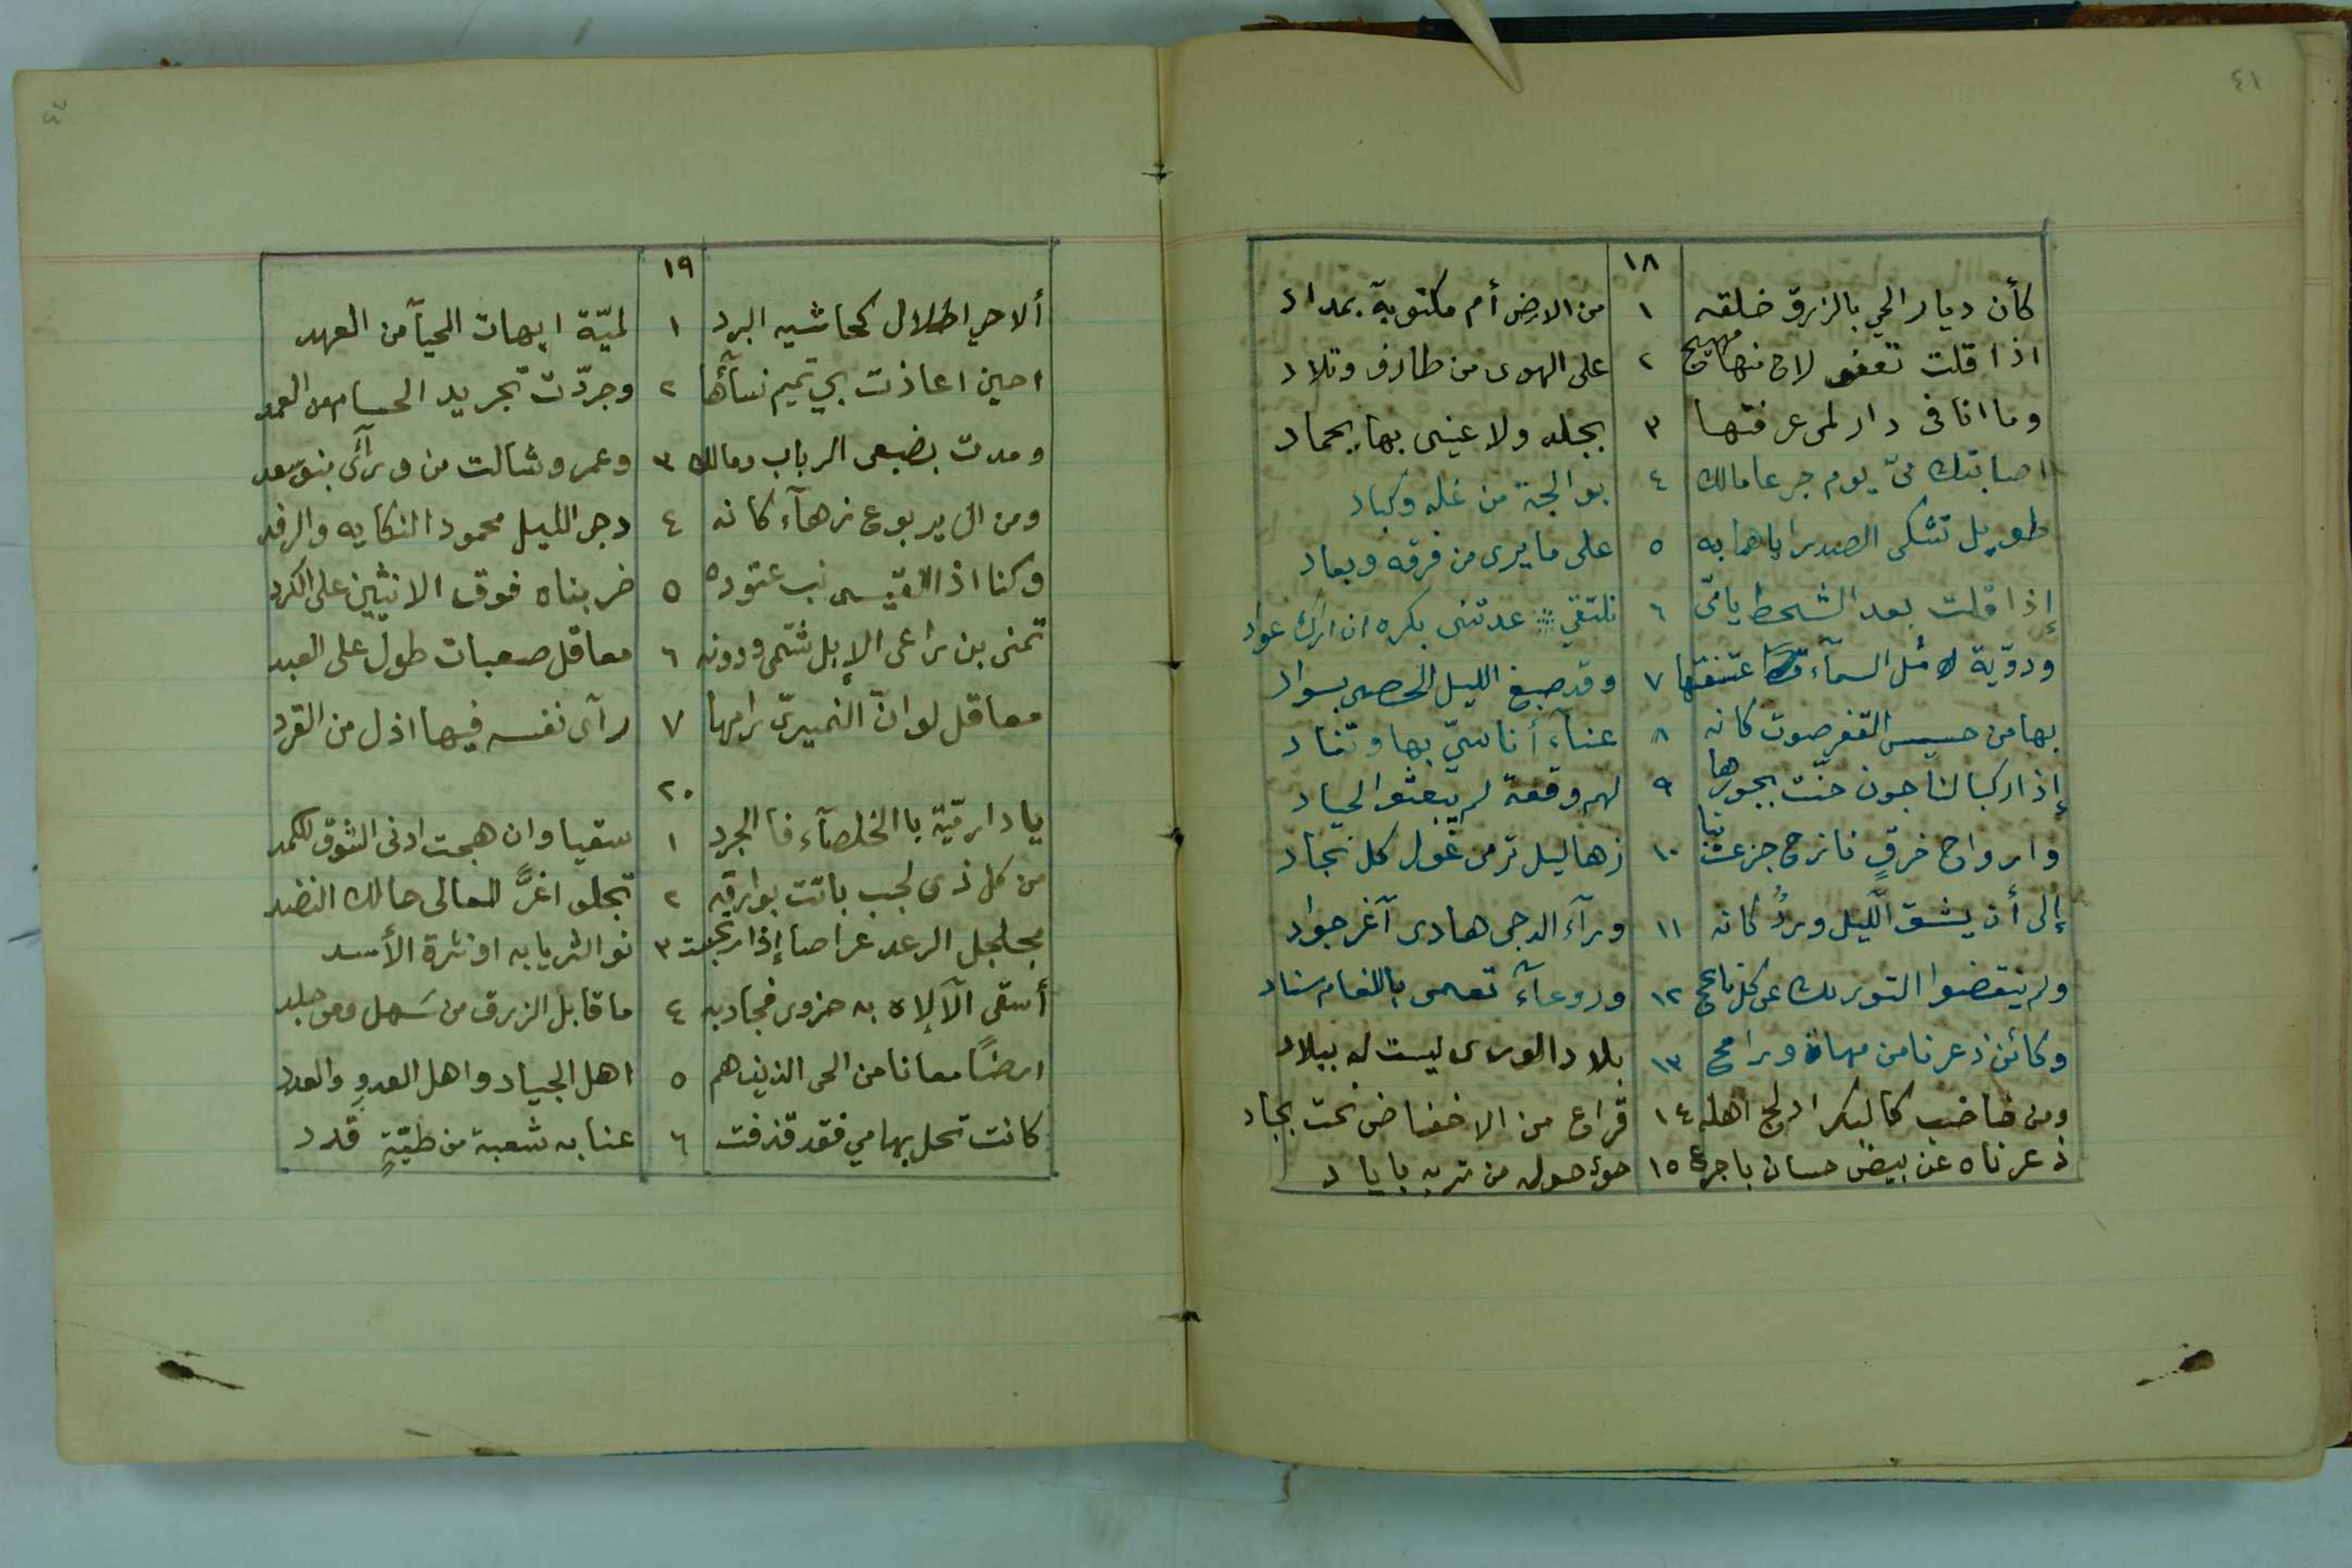 ٤١
١٨
كأن ديار الحي بالزرق خلقه ١ من الارض أم مكتوبة بمداد
اذا قلت تعفو لاح منها مهيج ٢ على الهوى من طارف وتلاد
وما انا فى دار لمى عرفتها ٣ بجلد ولا عينى بها بجماد
اصابتك مىّ يوم جرعا مالك ٤ بوالجة من غله وكباد
طويل تشكى الصدر اياهما به ٥ على ما يرى من فرقه وبعاد
إذا قلت بعد الشحط يا مىّ ٦ نلتقي عدتنى بكره ان اراك عواد
ودوّية مثل السمآء اعتسفتها ٧ وقد صبغ الليل الحصى بسواد
بها من حسيس القفر صوت كانه ٨ غنآء أناسيّ بها وتناد
إذا ركبا لنا جون حنّت بجوزها ٩ لهم وقعة لم يبعثوا لحياد
وارواح خرقٍ نازح جزعت بنا ١٠ زهاليل ترمى غول كل نجاد
إلى أن يشق الّليل وردٌ كانه ١١ ورآء الدجى هادى آغر جواد
ولم ينقضوا التوريك عن كل ناعج ١٢ وروعآء تعمى باللغام سناد
وكائن ذعرنا من مهاة ورامح ١٣ بلاد الورى ليست له ببلاد
ومن خاضب كالبكر ادلج اهله ١٤ فراع من الاحفاض تحت بجاد
ذعرناه عن بيض حسان باجرع ١٥ حوى حوله من تربه باياد
١٩
ألا حي اطلال كحاشيه البرد ١ لميّة ايهات المحيآ من العهد
احين اعاذت بي تميم نسآءها ٢ وجردّت تجريد الحسام من الغمد
ومدت بضبعى الرباب ومالك ٣ وعمر وشالت من ورآئى بنو سعد
ومن ال يربوع زهآء كانه ٤ دجى الليل محمود النكايه والرفد
وكنا اذا القيسى نب عتوده ٥ ضربناه فوق الانثيين على الكرد
تمنى بن راعى الإبل شتمى ودونه ٦ معاقل صعبات طول على العبد
معاقل لو انّ النميرىّ رامها ٧ رآى نفسه فيها اذل من القرد
٢٠
يا دار ميّة با الخلصآء فا الجرد ١ سقيا وان هجت ادنى الشوق للكمد
من كل ذى لجب باتت بوارقه ٢ تجلو اغرَّ المعالى حالك النضد
مجلجل الرعد عراصا إذا رتجست ٣ نو الثريا به او نثرة الأسد
أسقى الآلاه به حزوى فجاد به ٤ ما قابل الزرق من سَهل ومن جلد
ارضًا معانا من الحى الذين هم ٥ اهل الجياد واهل العدوِ والعدد
كانت تحل بها مي فقد قذفت ٦ عنا به شعبة من طيّةٍ قدد